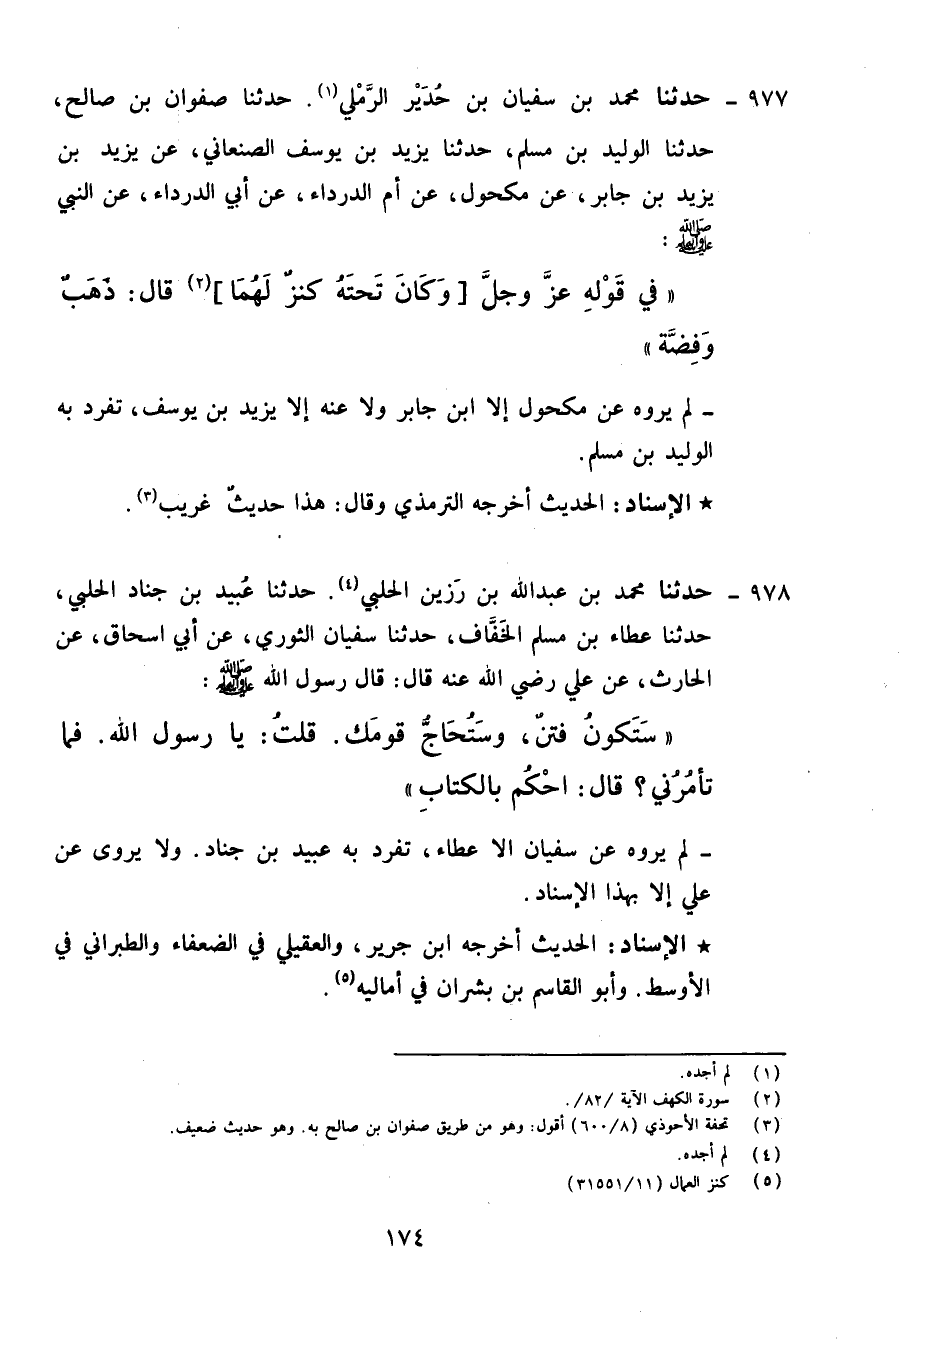 ٩٧٧ ـ حدثنا محمد بن سفيان بن حُدَيْر الرَّمْلي(١). حدثنا صفوان بن صالح،
حدثنا الوليد بن مسلم، حدثنا يزيد بن يوسف الصنعاني، عن يزيد بن
يزيد بن جابر، عن مكحول، عن أم الدرداء، عن أبي الدرداء، عن النبي
ﷺ :
« في قَوْلهِ عزَّ وجلَّ [وَكَانَ تَحتَهُ كنزٌ لَهُمَا](٢) قال: ذَهَبٌ
وَفِضَّة »
ـ لم يروه عن مكحول إلا ابن جابر ولا عنه إلا يزيد بن يوسف، تفرد به
الوليد بن مسلم.
★ الإسناد: الحديث أخرجه الترمذي وقال: هذا حديثٌ غريب(٣).
٩٧٨ ـ حدثنا محمد بن عبدالله بن رَزين الحلبي(٤). حدثنا عُبيد بن جناد الحلبي،
حدثنا عطاء بن مسلم الخَفَّاف، حدثنا سفيان الثوري، عن أبي اسحاق، عن
الحارث، عن علي رضي الله عنه قال: قال رسول الله ﷺ :
« سَتَكونُ فتنٌ، وسَتُحَاجُّ قومَك. قلتُ: يا رسول الله. فما
تأمُرُني؟ قال: احْكُم بالكتابِ »
ـ لم يروه عن سفيان الا عطاء، تفرد به عبيد بن جناد. ولا يروى عن
علي إلا بهذا الإسناد.
★ الإسناد: الحديث أخرجه ابن جرير، والعقيلي في الضعفاء والطبراني في
الأوسط. وأبو القاسم بن بشران في أماليه(٥).
(١) لم أجده.
(٢) سورة الكهف الآية /٨٢/.
(٣) تحفة الأحوذي (٦٠٠/٨) أقول: وهو من طريق صفوان بن صالح به. وهو حديث ضعيف.
(٤) لم أجده.
(٥) كنز العمال (٣١٥٥١/١١)
١٧٤